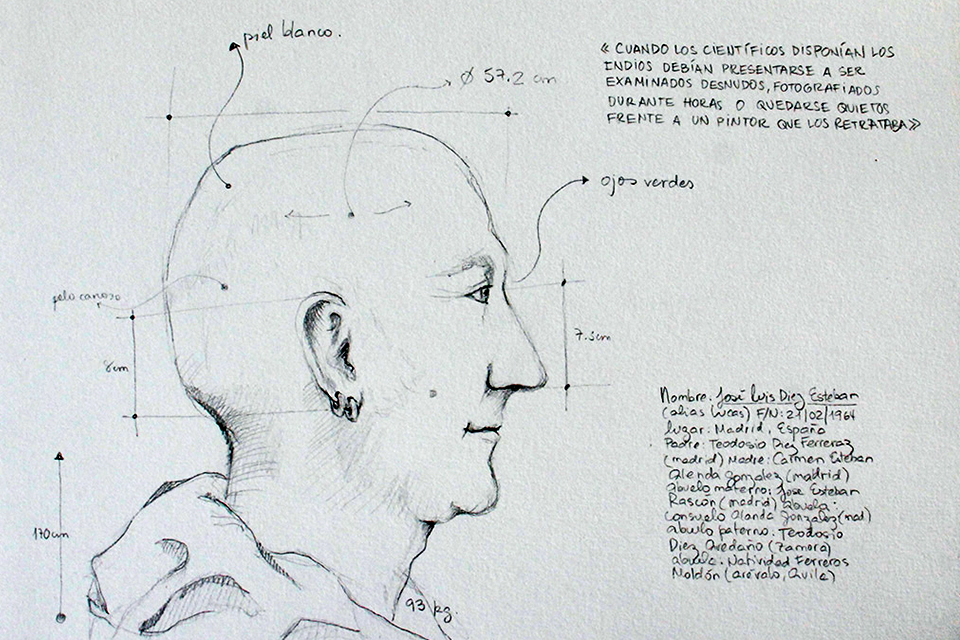 piel blanco.
Ø 57.2 cm
« CUANDO LOS CIENTÍFICOS DISPONÍAN LOS
INDIOS DEBÍAN PRESENTARSE A SER
EXAMINADOS DESNUDOS, FOTOGRAFIADOS
DURANTE HORAS O QUEDARSE QUIETOS
FRENTE A UN PINTOR QUE LOS RETRATABA»
ojos verdes
pelo canoso
8cm
7.3cm
170cm
93 kg.
Nombre: José Luis Diez Esteban
(alias Lucas) F/N: 21/02/1964
lugar: Madrid, España
Padre: Teodosio Diez Ferreraz
(madrid) Madre: Carmen Esteban
Alenda Gonzalez (madrid)
abuelo materno: Jose Esteban
Rascón (madrid) abuela:
Consuelo Alanda Gonzalez (mad)
abuelo paterno: Teodosio
Diez Avedaño (Zamora)
abuela: Natividad Ferreros
Moldón (arévalo, Avila)